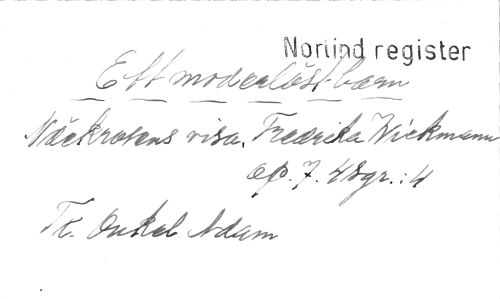 Norlind register
Ett moderlöst barn
Näckrosens visa. Fredrika Wickmann
op. 7. 4 sgr.: 4
Tx. Onkel Adam